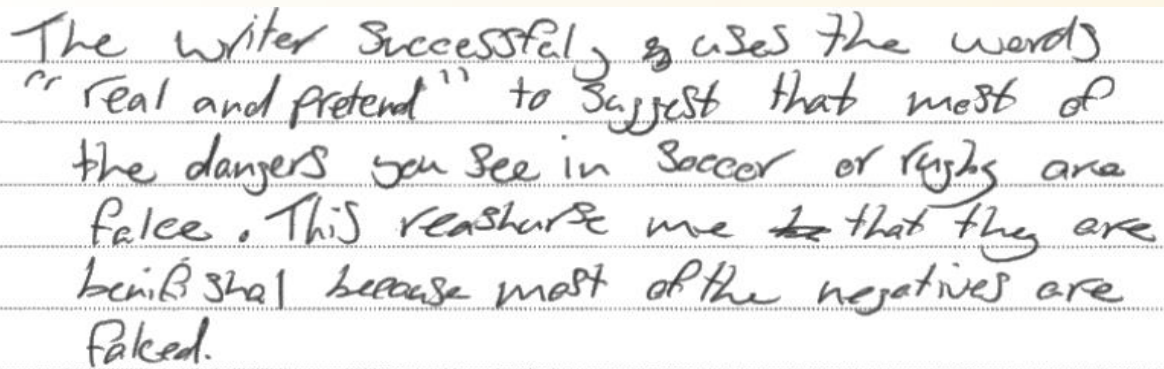 The writer Successfuly uses the words
"real and pretend" to Suggest that most of
the dangers you See in Soccer or rugby are
falce. This reashurse me that they are
benifishal because most of the negatives are
faked.